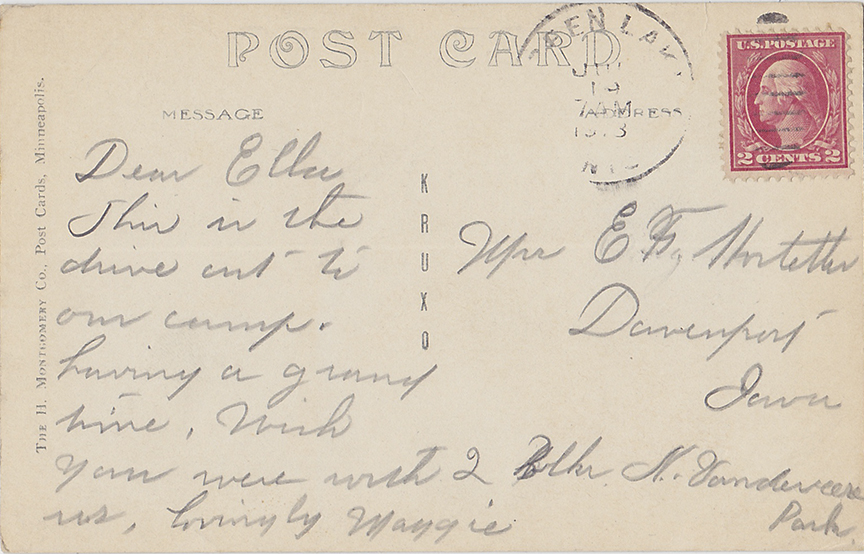 POST CARD
MESSAGE
ADDRESS
THE H. MONTGOMERY CO., Post Cards, Minneapolis.
KRUXO
JUL
19
7 AM
WIS
U.S. POSTAGE
2 CENTS 2
Dear Ella
This is the
drive out to
our camp.
having a grand
time, Wish
you were with
us, lovingly Maggie
Mrs E F Hostetler
Davenport
Iowa
2 Blks. N. Vanderveere
Park.